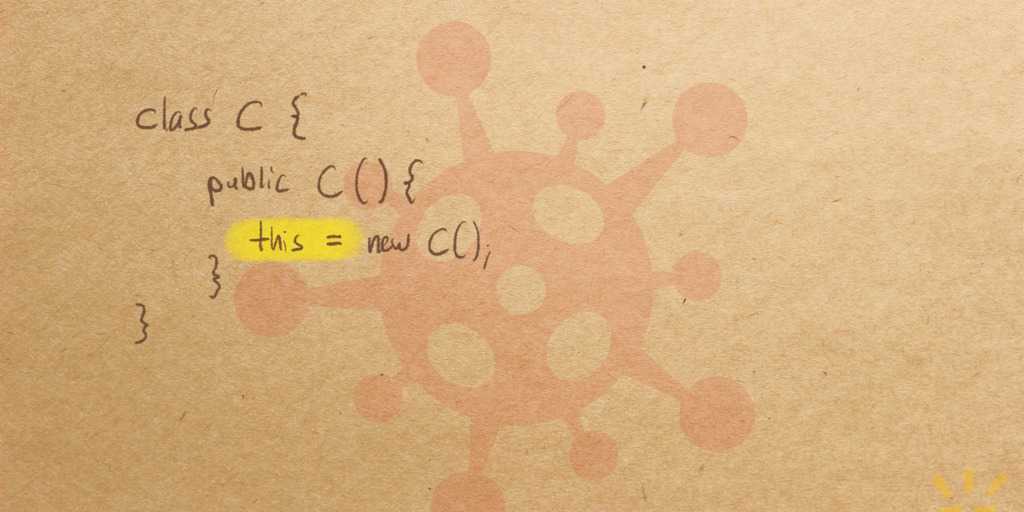 class C {
public C() {
this = new C();
}
}